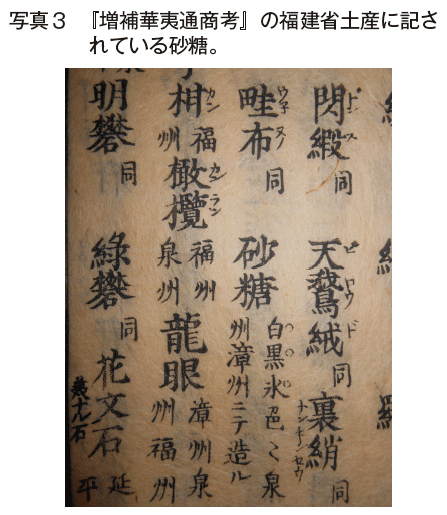 写真3 『増補華夷通商考』の福建省土産に記さ
れている砂糖。
閃緞 同 天鵞絨 同 裏綃 同
畦布 同 砂糖 白黒氷色々泉州漳州ニテ造ル
柑 福州 橄欖 福州泉州 龍眼 漳州泉州福州
明礬 同 緑礬 同 花文石 延平